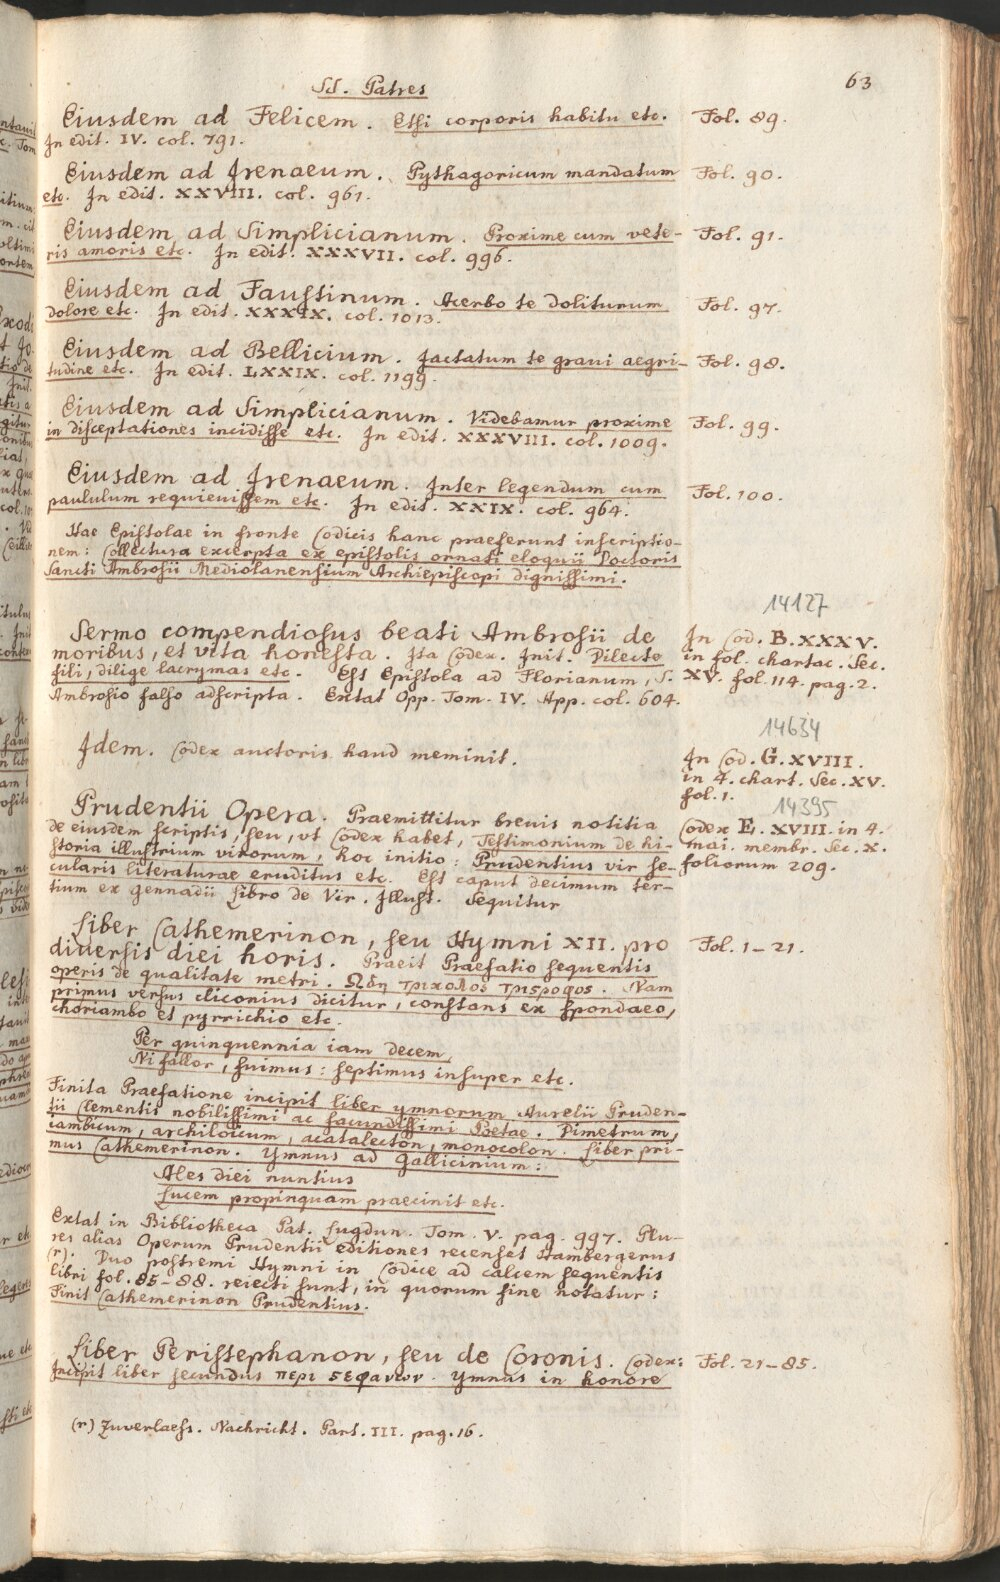 SS. Patres
63
Eiusdem ad Felicem. Etsi corporis habitu etc. Fol. 89.
In edit. IV. col. 791.
Eiusdem ad Irenaeum. Pythagoricum mandatum Fol. 90.
etc. In edit. XXVIII. col. 961.
Eiusdem ad Simplicianum. Proxime cum vete- Fol. 91.
ris amoris etc. In edit. XXXVII. col. 996.
Eiusdem ad Faustinum. Acerbo te doliturum Fol. 97.
dolore etc. In edit. XXXIX. col. 1013.
Eiusdem ad Bellicium. Jactatum te graui aegri- Fol. 98.
tudine etc. In edit. LXXIX. col. 1199.
Eiusdem ad Simplicianum. Videbamur proxime Fol. 99.
in disceptationes incidisse etc. In edit. XXXVIII. col. 1009.
Eiusdem ad Irenaeum. Inter legendum cum Fol. 100.
paululum requieuissem etc. In edit. XXIX. col. 964.
Hae Epistolae in fronte Codicis hanc praeferunt inscriptio-
nem: Collectura excerpta ex epistolis ornati eloquii Doctoris
Sancti Ambrosii Mediolanensium Archiepiscopi dignissimi.
14127
Sermo compendiosus beati Ambrosii de In Cod. B. XXXV.
moribus, et vita honesta. Ita Codex. Init. Dilecte in fol. chartac. Sec.
fili, dilige lacrymas etc. Est Epistola ad Florianum, S. XV. fol. 114. pag. 2.
Ambrosio falso adscripta. Extat Opp. Tom. IV. App. col. 604.
14634
Idem. Codex auctoris haud meminit. In Cod. G. XVIII.
in 4. chart. Sec. XV.
fol. 1.
14395
Prudentii Opera. Praemittitur breuis notitia Codex E. XVIII. in 4.
de eiusdem scriptis, seu, vt Codex habet, Testimonium de hi- mai. membr. Sec. X.
storia illustrium virorum, hoc initio: Prudentius vir se- foliorum 209.
cularis literaturae eruditus etc. Est caput decimum ter-
tium ex Gennadii Libro de Vir. Illust. Sequitur
Liber Cathemerinon, seu Hymni XII. pro Fol. 1–21.
diuersis diei horis. Praeit Praefatio sequentis
operis de qualitate metri. Ωδη τρικολος τρισροφος. Nam
primus versus cliconius dicitur, constans ex spondaeo,
choriambo et pyrrichio etc.
Per quinquennia iam decem,
Ni fallor, fuimus: septimus insuper etc.
Finita Praefatione incipit liber ymnorum Aurelii Pruden-
tii Clementis nobilissimi ac facundissimi Poetae. Dimetrum,
iambicum, archiloicum, acatalecton, monocolon. Liber pri-
mus Cathemerinon. Ymnus ad Gallicinium:
Ales diei nuntius
Lucem propinquam praecinit etc.
Extat in Bibliotheca Pat. Lugdun. Tom. V. pag. 997. Plu-
res alias Operum Prudentii editiones recenset Hambergerus
(r). Duo postremi Hymni in Codice ad calcem sequentis
libri fol. 85–88. reiecti sunt, in quorum fine notatur:
Finit Cathemerinon Prudentius.
Liber Peristephanon, seu de Coronis. Codex: Fol. 21–85.
Incipit liber secundus περι ϛεφανων. Ymnus in honore
(r) Zuverlaess. Nachricht. Part. III. pag. 16.